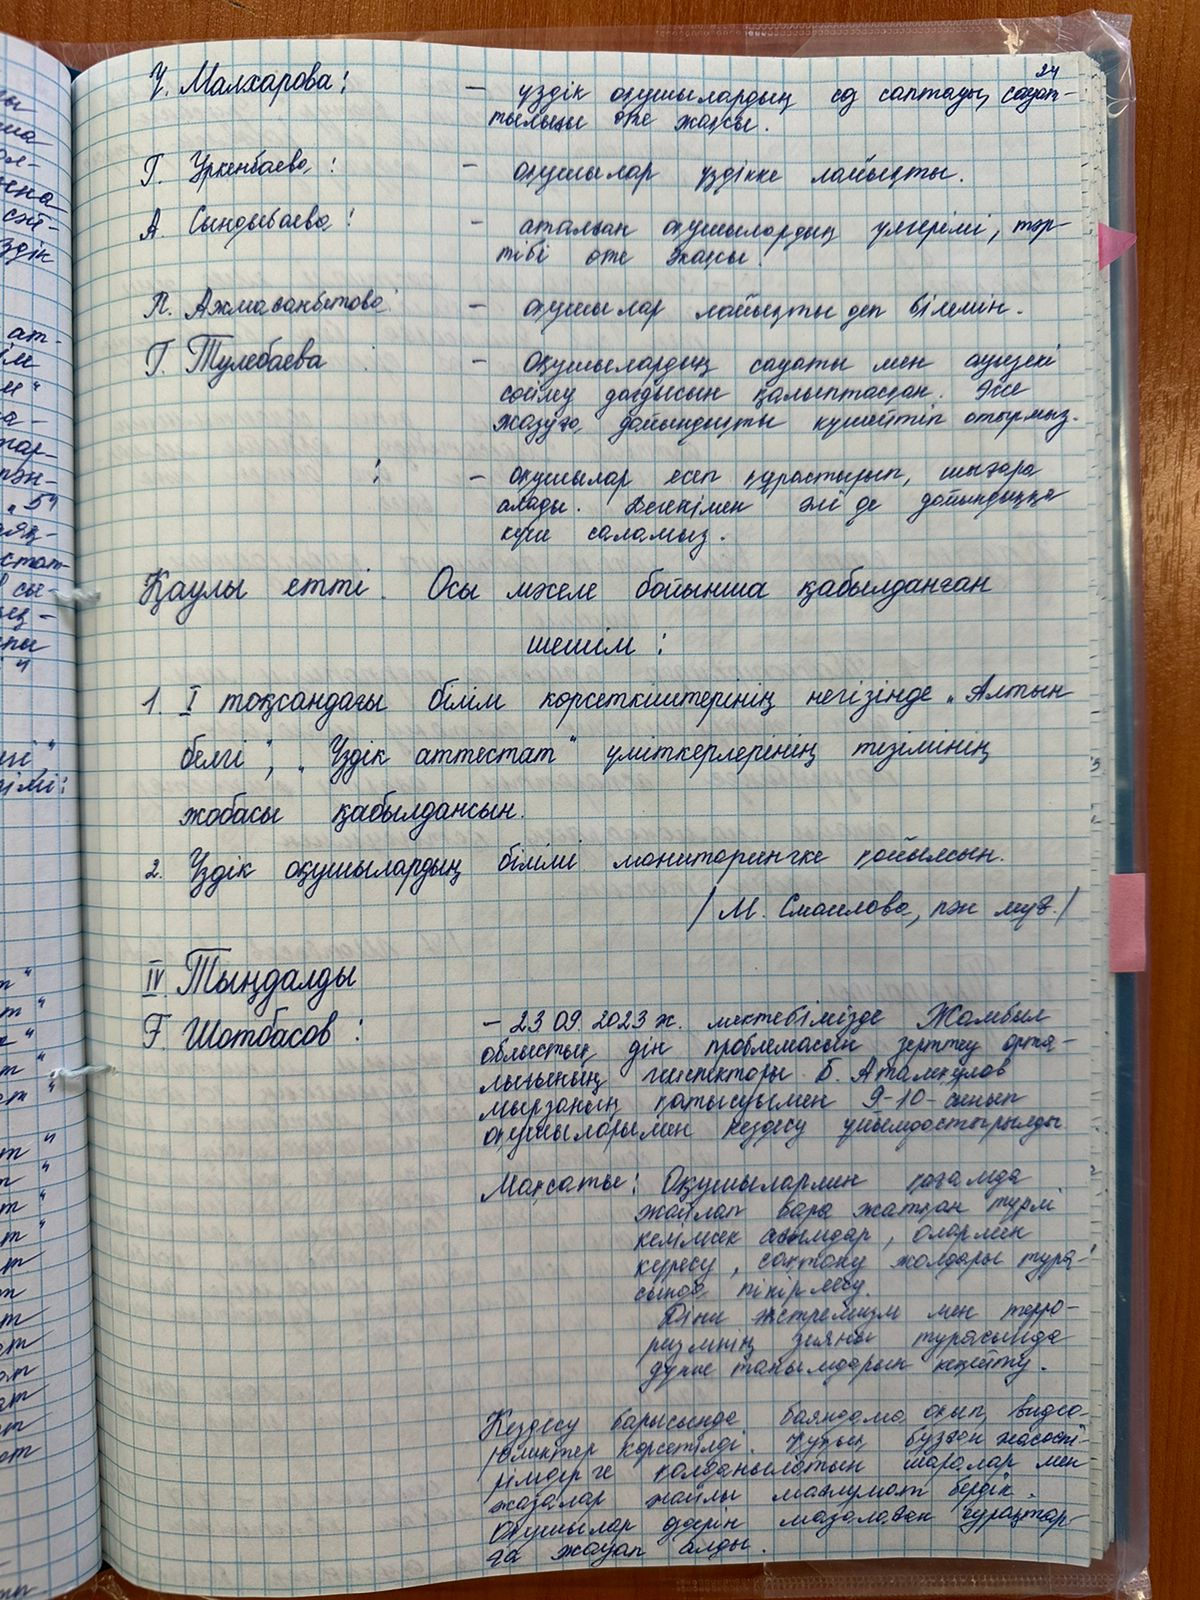 24
У. Малхарова: – үздік оқушылардың сөз саптауы, сауат-
тылығы өте жақсы.
Г. Уркенбаева: – оқушылар үздікке лайықты.
А. Сындыбаева: – аталған оқушылардың үлгерімі, тәр-
тібі өте жақсы.
П. Ажмаханбетова: – оқушылар лайықты деп білемін.
Г. Тулебаева : – Оқушылардың сауаты мен ауызекі
сөйлеу дағдысын қалыптасқан. Эссе
жазуға дайындықты күшейтіп отырмыз.
: – оқушылар есеп құрастырып, шығара
алады. Дегенімен әлі де дайындыққа
күш саламыз.
Қаулы етті. Осы мәселе бойынша қабылданған
шешім:
1. I тоқсандағы білім көрсеткіштерінің негізінде „Алтын
белгі", „Үздік аттестат" үміткерлерінің тізімінің
жобасы қабылдансын.
2. Үздік оқушылардың білімі мониторингке қойылсын.
/ М. Смаилова, пән мұғ. /
IV. Тыңдалды
Ғ. Шотбасов: – 23 09 2023 ж. мектебімізде Жамбыл
облыстық дін проблемасын зерттеу орта-
лығының инспекторы Б. Аталықұлов
мырзаның қатысуымен 9-10-сынып
оқушыларымен кездесу ұйымдастырылды
Мақсаты: Оқушылармен қоғамда
жайлап бара жатқан түрлі
келімсек ағымдар, олармен
күресу, сақтану жолдары тура-
сында пікірлесу.
Діни экстремизм мен терро-
ризмнің зияны турасында
дүние танымдарын кеңейту.
Кездесу барысында баяндама оқып, видео-
роликтер көрсетілді. Құқық бұзған жасөспі-
рімдерге қолданылатын шаралар мен
жазалар жайлы мағлұмат бердік.
Оқушылар өздерін мазалаған сұрақтар-
ға жауап алды.